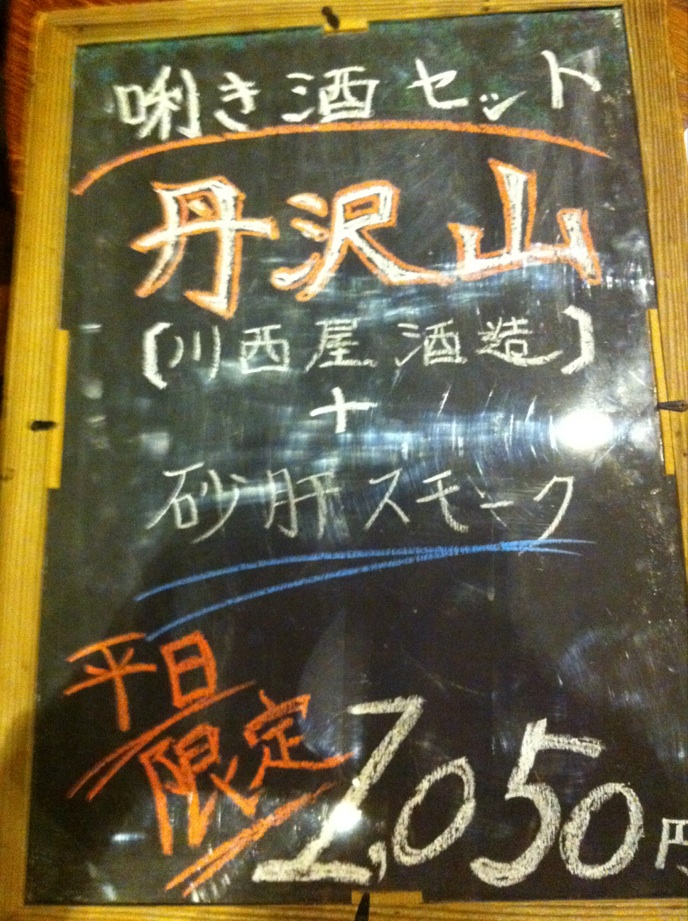 唎き酒セット
丹沢山
(川西屋酒造)
+
砂肝スモーク
平日
限定
1,050円